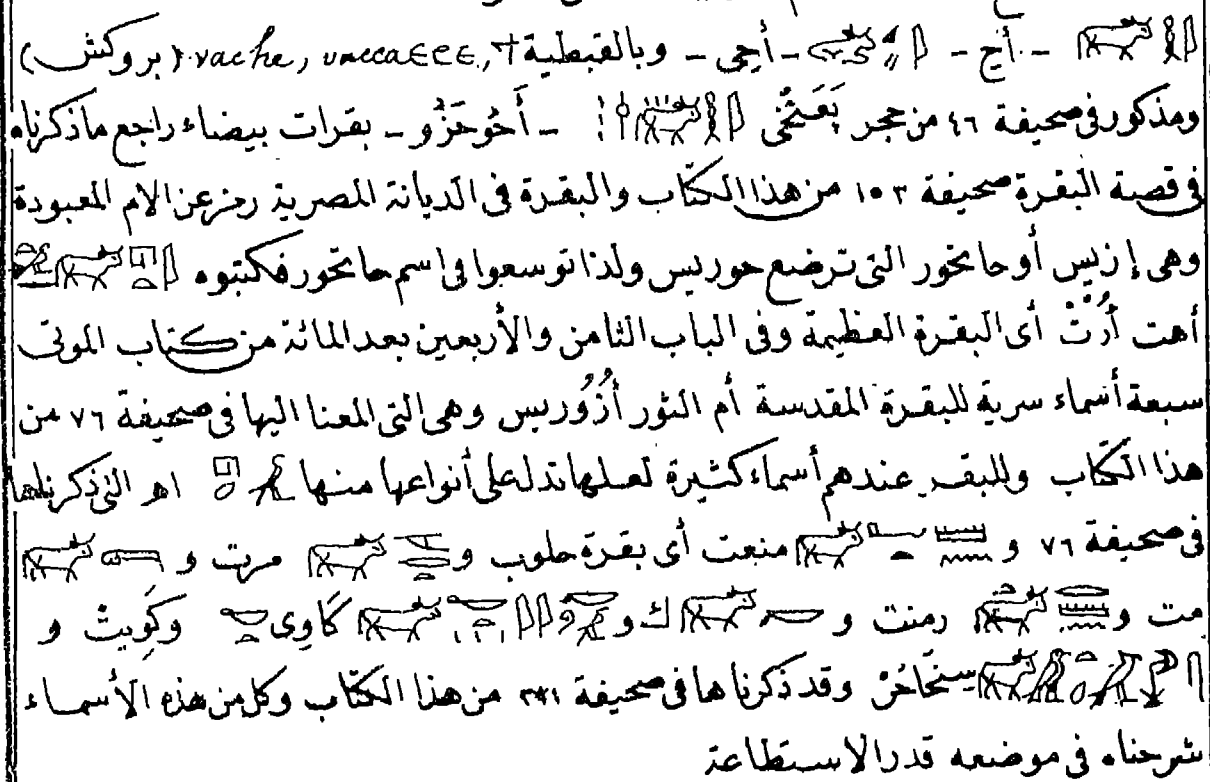 - أج - - أجى - وبالقبطية vache, (بروكش)
ومذكور فى صحيفة ٤٦ من حجر بَعَنْخى - أَحُوحَزُو - بقرات بيضاء راجع ماذكرناه
فى قصة البقرة صحيفة ١٥٣ من هذا الكتاب والبقرة فى الديانة المصرية رمز عن الام المعبودة
وهى إزيس أو حاتحور التى ترضع حوريس ولذا توسعوا فى اسم حاتحور فكتبوه
أهت أُرْتْ أى البقرة العظيمة وفى الباب الثامن والأربعين بعد المائة من كتاب الموتى
سبعة أسماء سرية للبقرة المقدسة أم الثور أُزُورِيس وهى التى المعنا اليها فى صحيفة ٧٦ من
هذا الكتاب وللبقر عندهم أسماء كثيرة لعلها تدل على أنواعها منها اهـ التى ذكرناها
فى صحيفة ٧٦ و منعت أى بقرة حلوب و مرت و
مت و رمنت و ك و كَاوِى وكَوِيتْ و
وقد ذكرناها فى صحيفة من هذا الكتاب وكل من هذه الأسماء
شرحناه فى موضعه قدر الاستطاعة